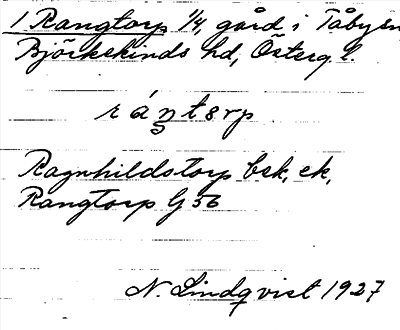 1 Rangtorp 1/4, gård i Tåby sn
Björkekinds hd, Österg. l.
ráŋtərp
Ragnhildstorp bsk, ek,
Rangtorp G 56
N. Lindqvist 1927